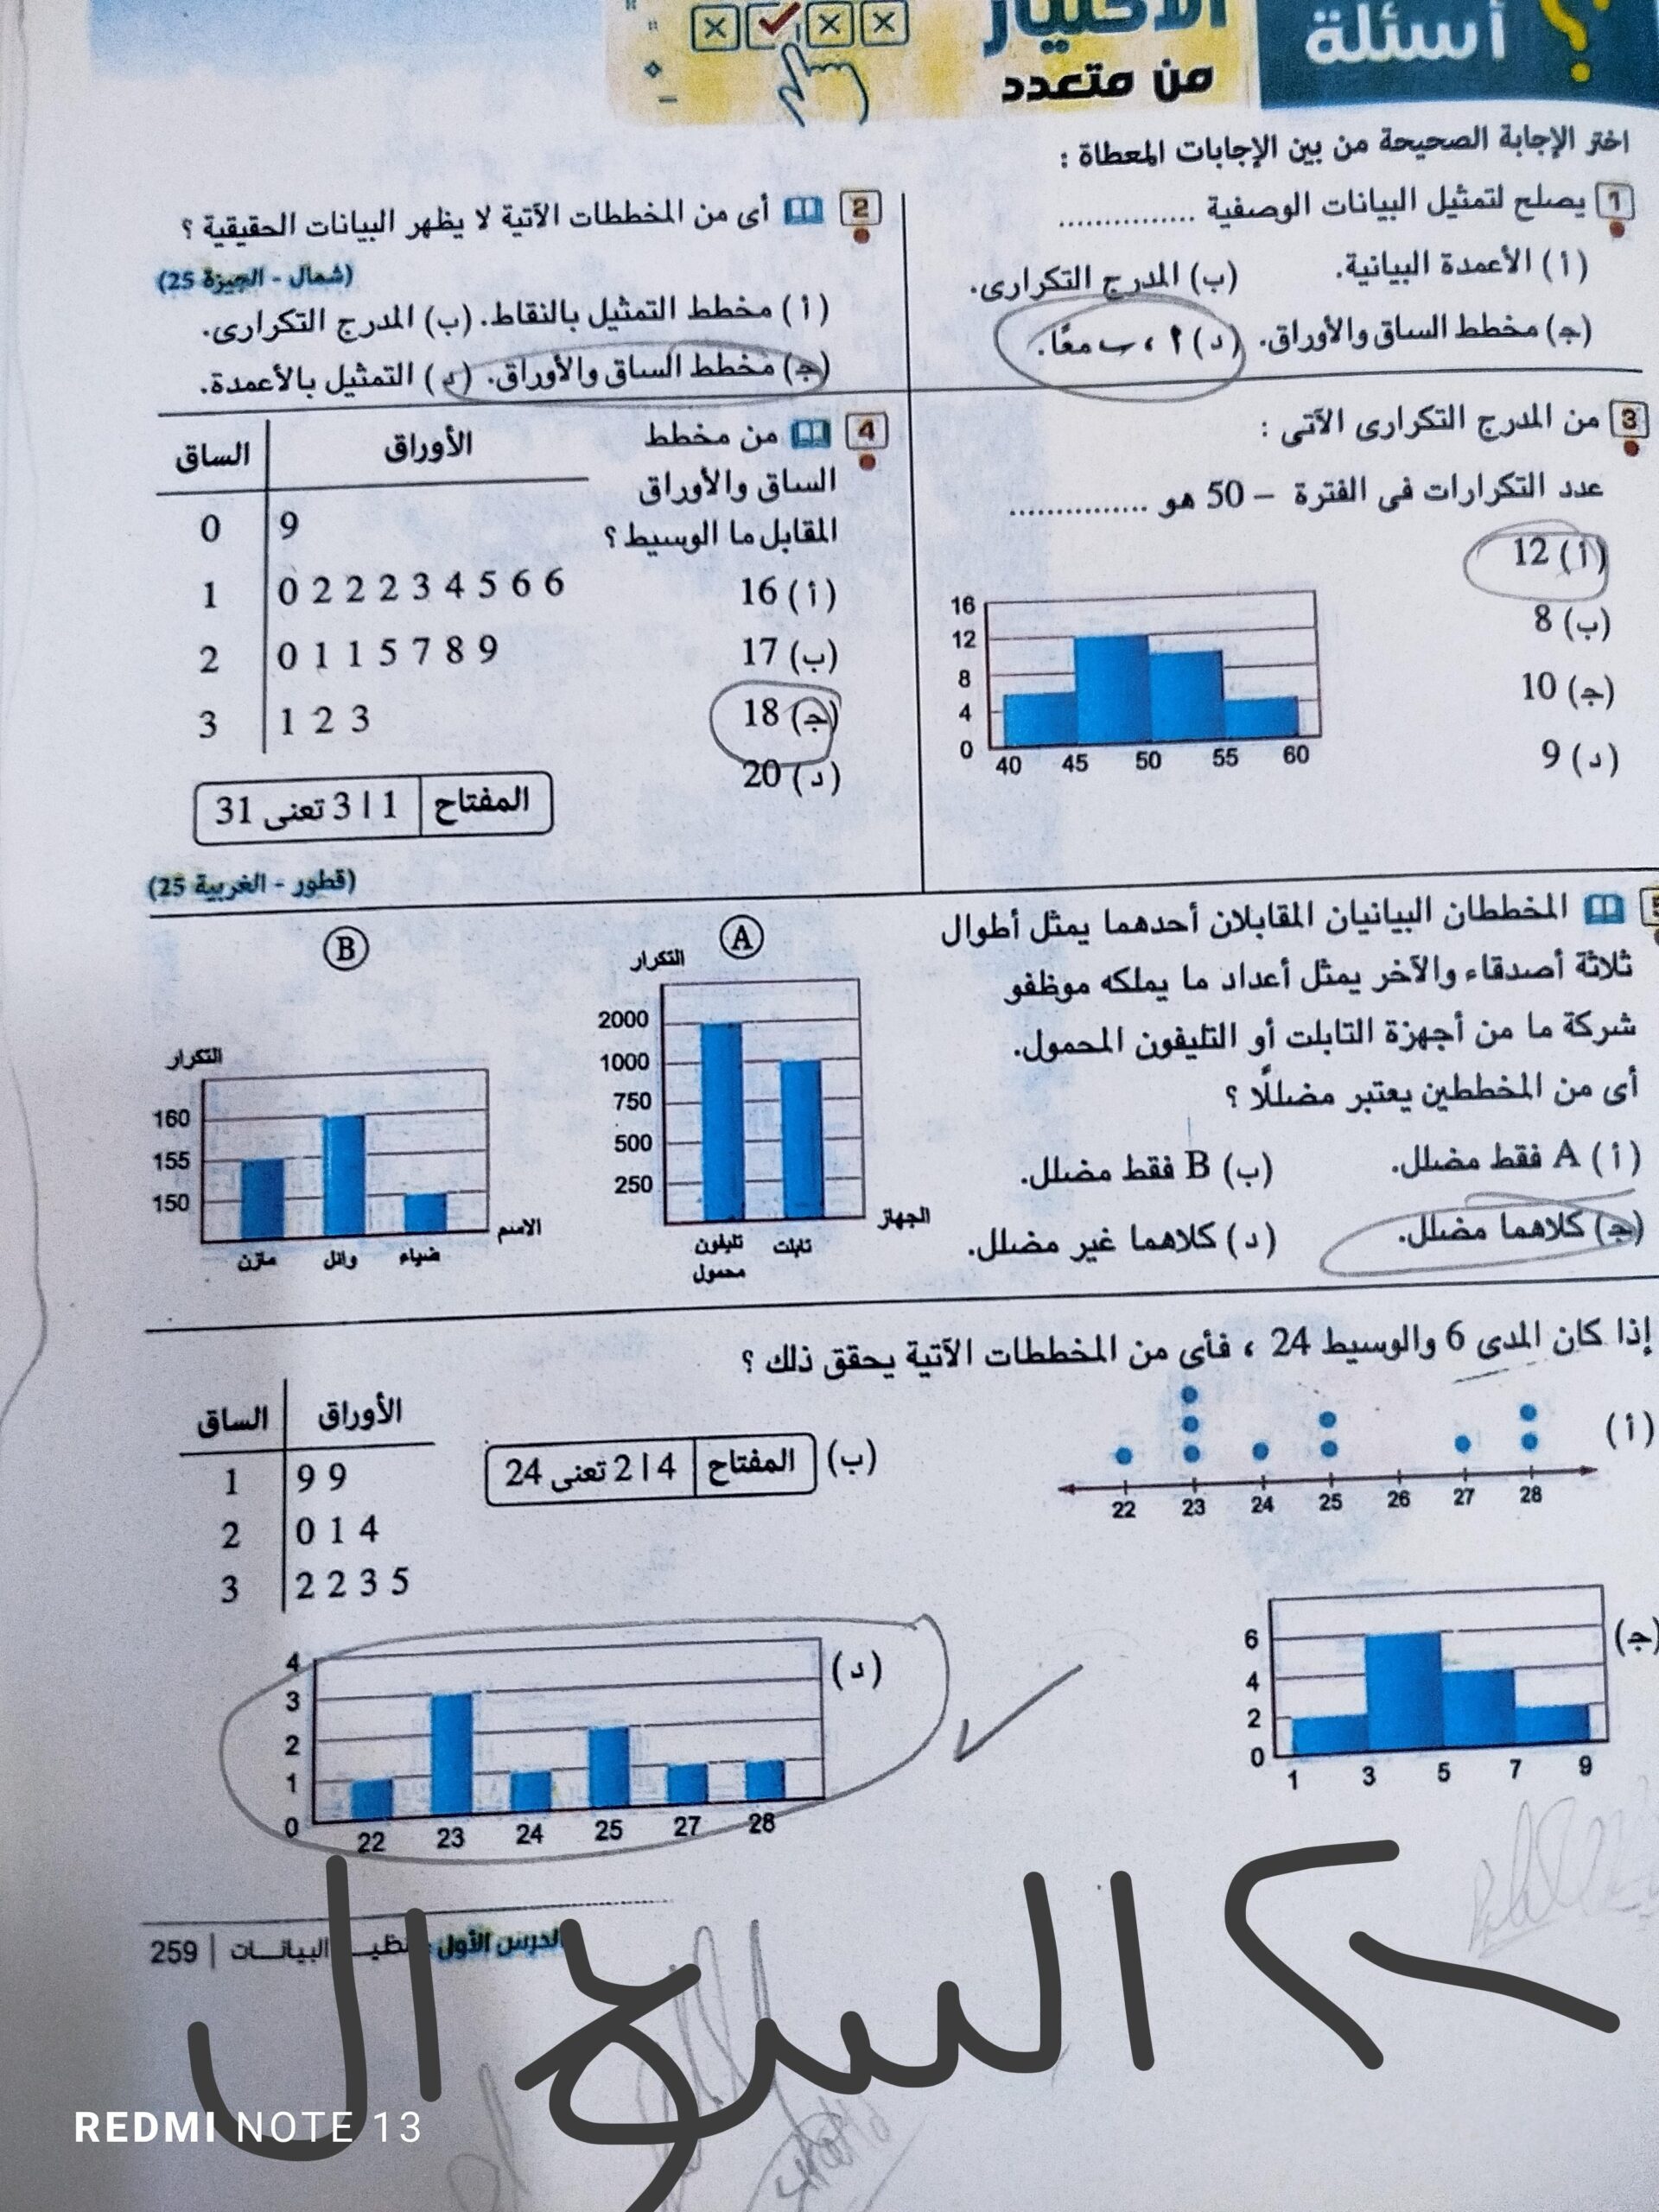 أسئلة
الاختيار
من متعدد
اختر الإجابة الصحيحة من بين الإجابات المعطاة :
1 يصلح لتمثيل البيانات الوصفية ...............
(أ) الأعمدة البيانية. (ب) المدرج التكرارى.
(جـ) مخطط الساق والأوراق. (د) أ ، ب معًا.
2 أى من المخططات الآتية لا يظهر البيانات الحقيقية ؟
(شمال - الجيزة 25)
(أ) مخطط التمثيل بالنقاط. (ب) المدرج التكرارى.
(جـ) مخطط الساق والأوراق. (د) التمثيل بالأعمدة.
3 من المدرج التكرارى الآتى :
عدد التكرارات فى الفترة – 50 هو ...............
(أ) 12
(ب) 8
(جـ) 10
(د) 9
16
12
8
4
0
40 45 50 55 60
4 من مخطط
الساق والأوراق
المقابل ما الوسيط ؟
(أ) 16
(ب) 17
(جـ) 18
(د) 20
الساق الأوراق
0 9
1 0 2 2 2 3 4 5 6 6
2 0 1 1 5 7 8 9
3 1 2 3
المفتاح 3 | 1 تعنى 31
(قطور - الغربية 25)
5 المخططان البيانيان المقابلان أحدهما يمثل أطوال
ثلاثة أصدقاء والآخر يمثل أعداد ما يملكه موظفو
شركة ما من أجهزة التابلت أو التليفون المحمول.
أى من المخططين يعتبر مضللًا ؟
(أ) A فقط مضلل. (ب) B فقط مضلل.
(جـ) كلاهما مضلل. (د) كلاهما غير مضلل.
A
التكرار
2000
1000
750
500
250
الجهاز
تليفون محمول تابلت
B
التكرار
160
155
150
الاسم
مازن وائل ضياء
إذا كان المدى 6 والوسيط 24 ، فأى من المخططات الآتية يحقق ذلك ؟
(أ)
22 23 24 25 26 27 28
(ب)
المفتاح 2 | 4 تعنى 24
الساق الأوراق
1 9 9
2 0 1 4
3 2 2 3 5
(جـ)
6
4
2
0
1 3 5 7 9
(د)
4
3
2
1
0
22 23 24 25 27 28
الدرس الأول
البيانات | 259
السؤال
REDMI NOTE 13